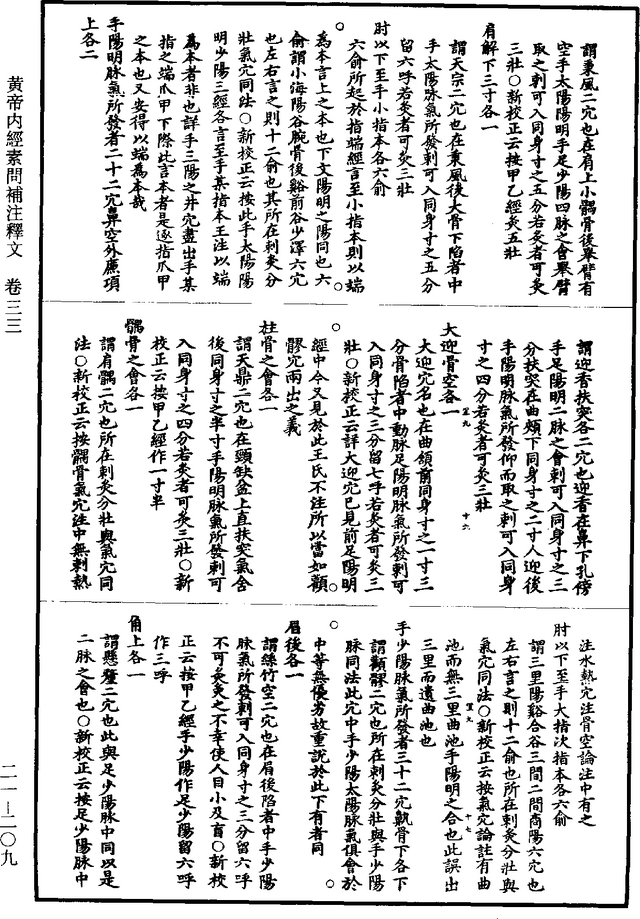 謂秉風二穴也在肩上小髃骨後舉臂有
空手太陽陽明手足少陽四脉之會舉臂
取之刺可入同身寸之五分若灸者可灸
三壯○新校正云按甲乙經灸五壯
肩解下三寸各一
謂天宗二穴也在秉風後大骨下陷者中
手太陽脉氣所發刺可入同身寸之五分
留六呼若灸者可灸三壯
肘以下至手小指本各六俞
六俞所起於指端經言至小指本則以端
為本言上之本也下文陽明之陽同也六
俞謂小海陽谷腕骨後谿前谷少澤六穴
也左右言之則十二俞也其所在刺灸分
壯氣穴同法○新校正云按此手太陽陽
明少陽三經各言至手某指本王注以端
為本者非也詳手三陽之井穴盡出手某
指之端爪甲下際此言本者是遂指爪甲
之本也又安得以端為本哉
手陽明脉氣所發者二十二穴鼻空外廉項
上各二
謂迎香扶突各二穴也迎香在鼻下孔傍
手足陽明二脉之會刺可入同身寸之三
分扶突在曲頰下同身寸之二寸人迎後
手陽明脉氣所發仰而取之刺可入同身
寸之四分若灸者可灸三壯
大迎骨空各一
大迎穴名也在曲頷前同身寸之一寸三
分骨陷者中動脉足陽明脉氣所發刺可
入同身寸之三分留七呼若灸者可灸三
壯○新校正云詳大迎穴已見前足陽明
經中今又見於此王氏不注所以當如顴
髎穴兩出之義
柱骨之會各一
謂天鼎二穴也在頸缺盆上直扶突氣舍
後同身寸之半寸手陽明脉氣所發刺可
入同身寸之四分若灸者可灸三壯○新
校正云按甲乙經作一寸半
髃骨之會各一
謂肩髃二穴也所在刺灸分壯與氣穴同
法○新校正云按髃骨氣穴注中無刺熱
注水熱穴注骨空論注中有之
肘以下至手大指次指本各六俞
謂三里陽谿合谷三間二間商陽六穴也
左右言之則十二俞也所在刺灸分壯與
氣穴同法○新校正云按氣穴論註有曲
池而無三里曲池手陽明之合也此誤出
三里而遺曲池也
手少陽脉氣所發者三十二穴鼽骨下各下
謂顴髎二穴也所在刺灸分壯與手少陽
脉同法此穴中手少陽太陽脉氣俱會於
中等無優劣故重說於此下有者同
眉後各一
謂絲竹空二穴也在眉後陷者中手少陽
脉氣所發刺可入同身寸之三分留六呼
不可灸灸之不幸使人目小及盲○新校
正云按甲乙經手少陽作足少陽留六呼
作三呼
角上各一
謂懸釐二穴也此與足少陽脉中同以是
二脉之會也○新校正云按足少陽脉中
黃帝内經素問補注釋文　卷三三
二一—二〇九